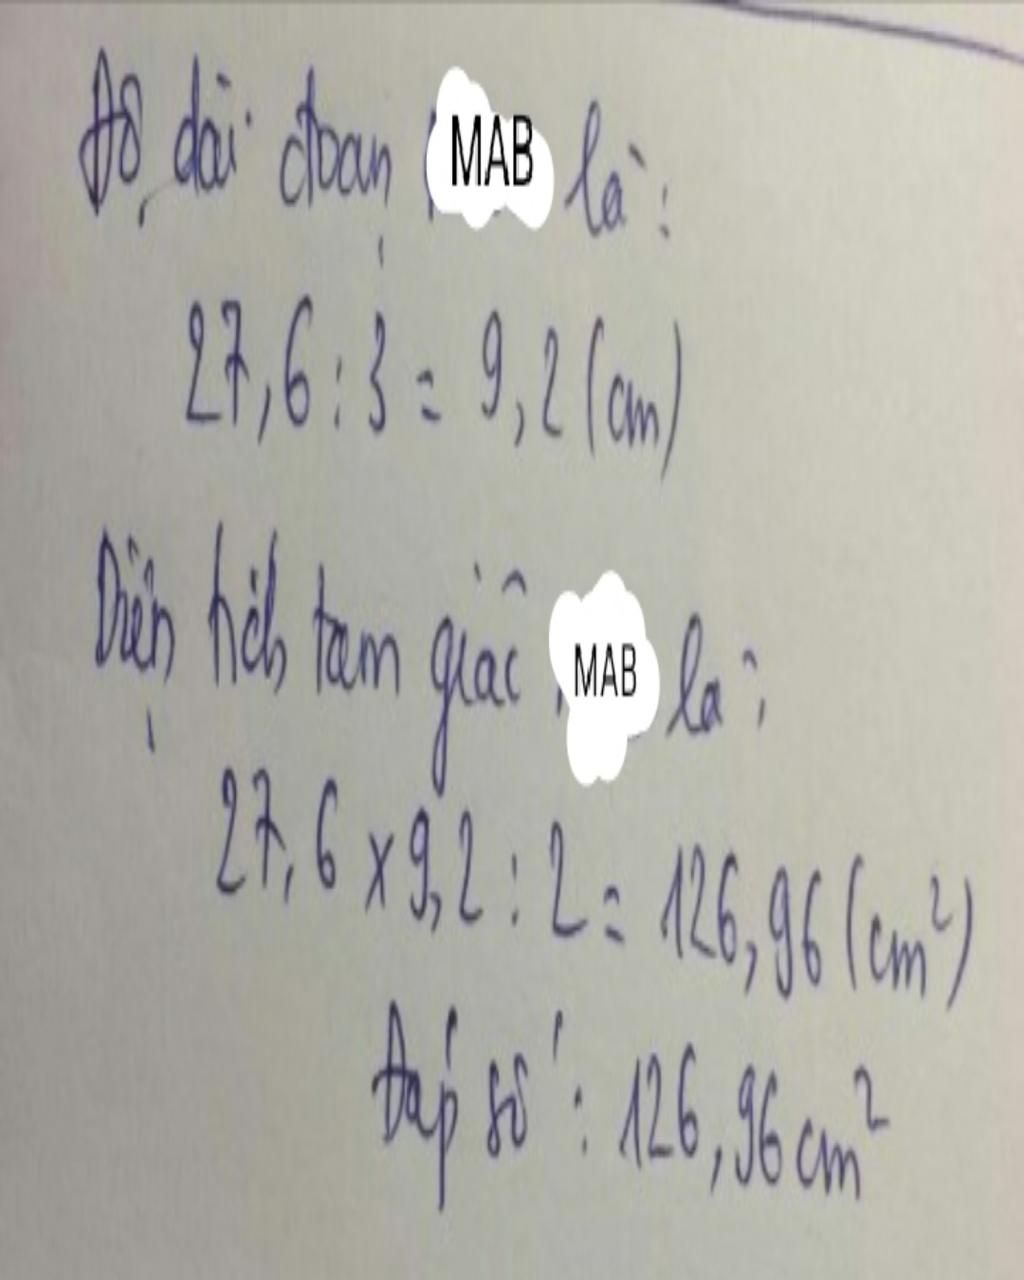 Độ dài đoạn MAB là:
27,6 : 3 = 9,2 (cm)
Diện tích tam giác MAB là:
27,6 x 9,2 : 2 = 126,96 (cm²)
Đáp số : 126,96 cm²